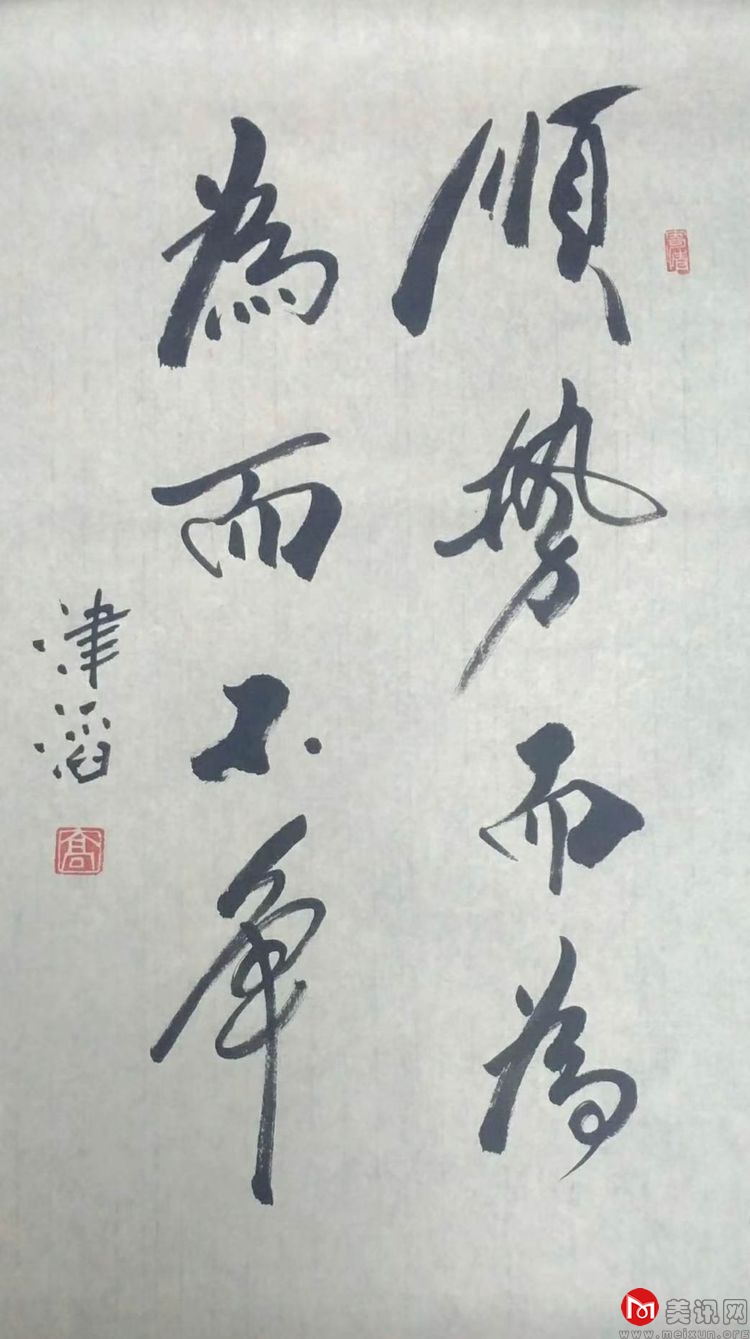 順勢而為
為而不争
津滔
喬
美讯网
www.meixun.org